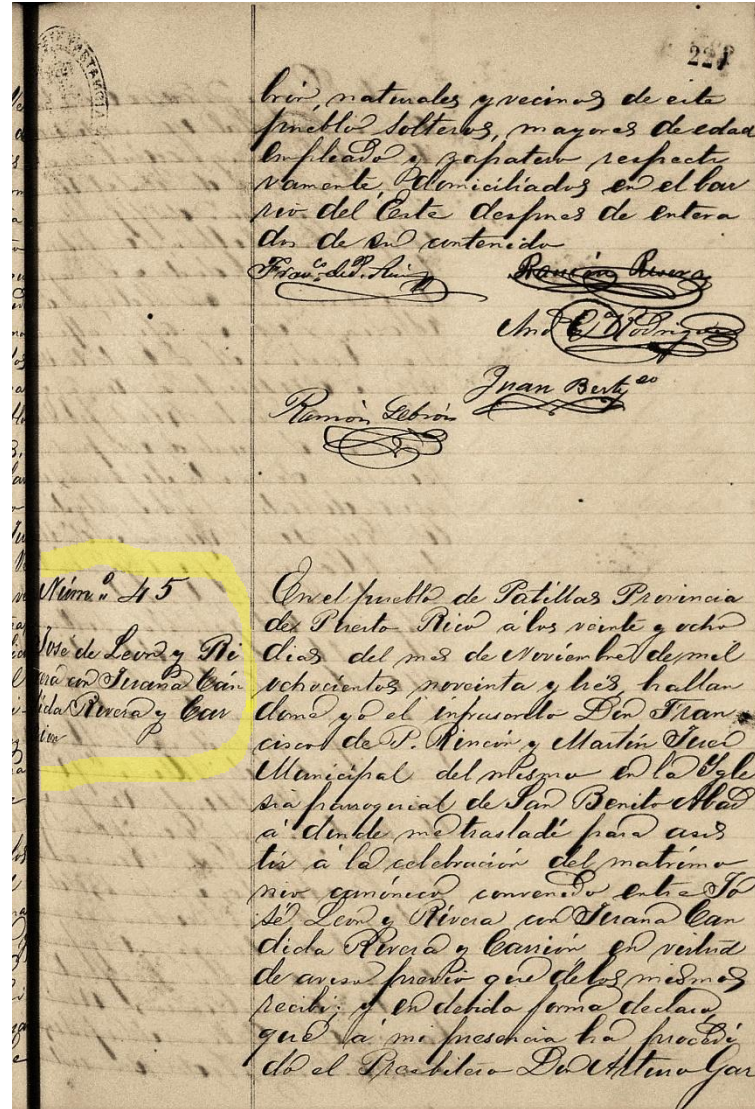 221
brón, naturales y vecinos de este
pueblo solteros, mayores de edad
empleado y zapatero respecti
vamente, domiciliados en el bar
rio del Este despues de entera
dos de su contenido
Franco. de P. Rin
Ramón Rivera
And E. Rodriguez
Juan Bert
Ramón Lebrón
Núm.º 45
José de Leon y Ri
vera con Juana Cán
dida Rivera y Car
En el pueblo de Patillas Provincia
de Puerto Rico a los veinte y ocho
dias del mes de Noviembre de mil
ochocientos noveinta y tres, hallan
dome yo el infrascrito Don Fran
cisco de P. Rincón y Martín Juez
Municipal del mismo en la Igle
sia parroquial de San Benito Abad
á donde me trasladé para asis
tir á la celebración del matrimo
nio canónico convenido entre Jo
sé Leon y Rivera con Juana Can
dida Rivera y Carrión en virtud
de aviso previo que de los mismos
recibi; y en debida forma declaro,
que á mi presencia ha procedi
do el Presbítero Don Arturo Gar